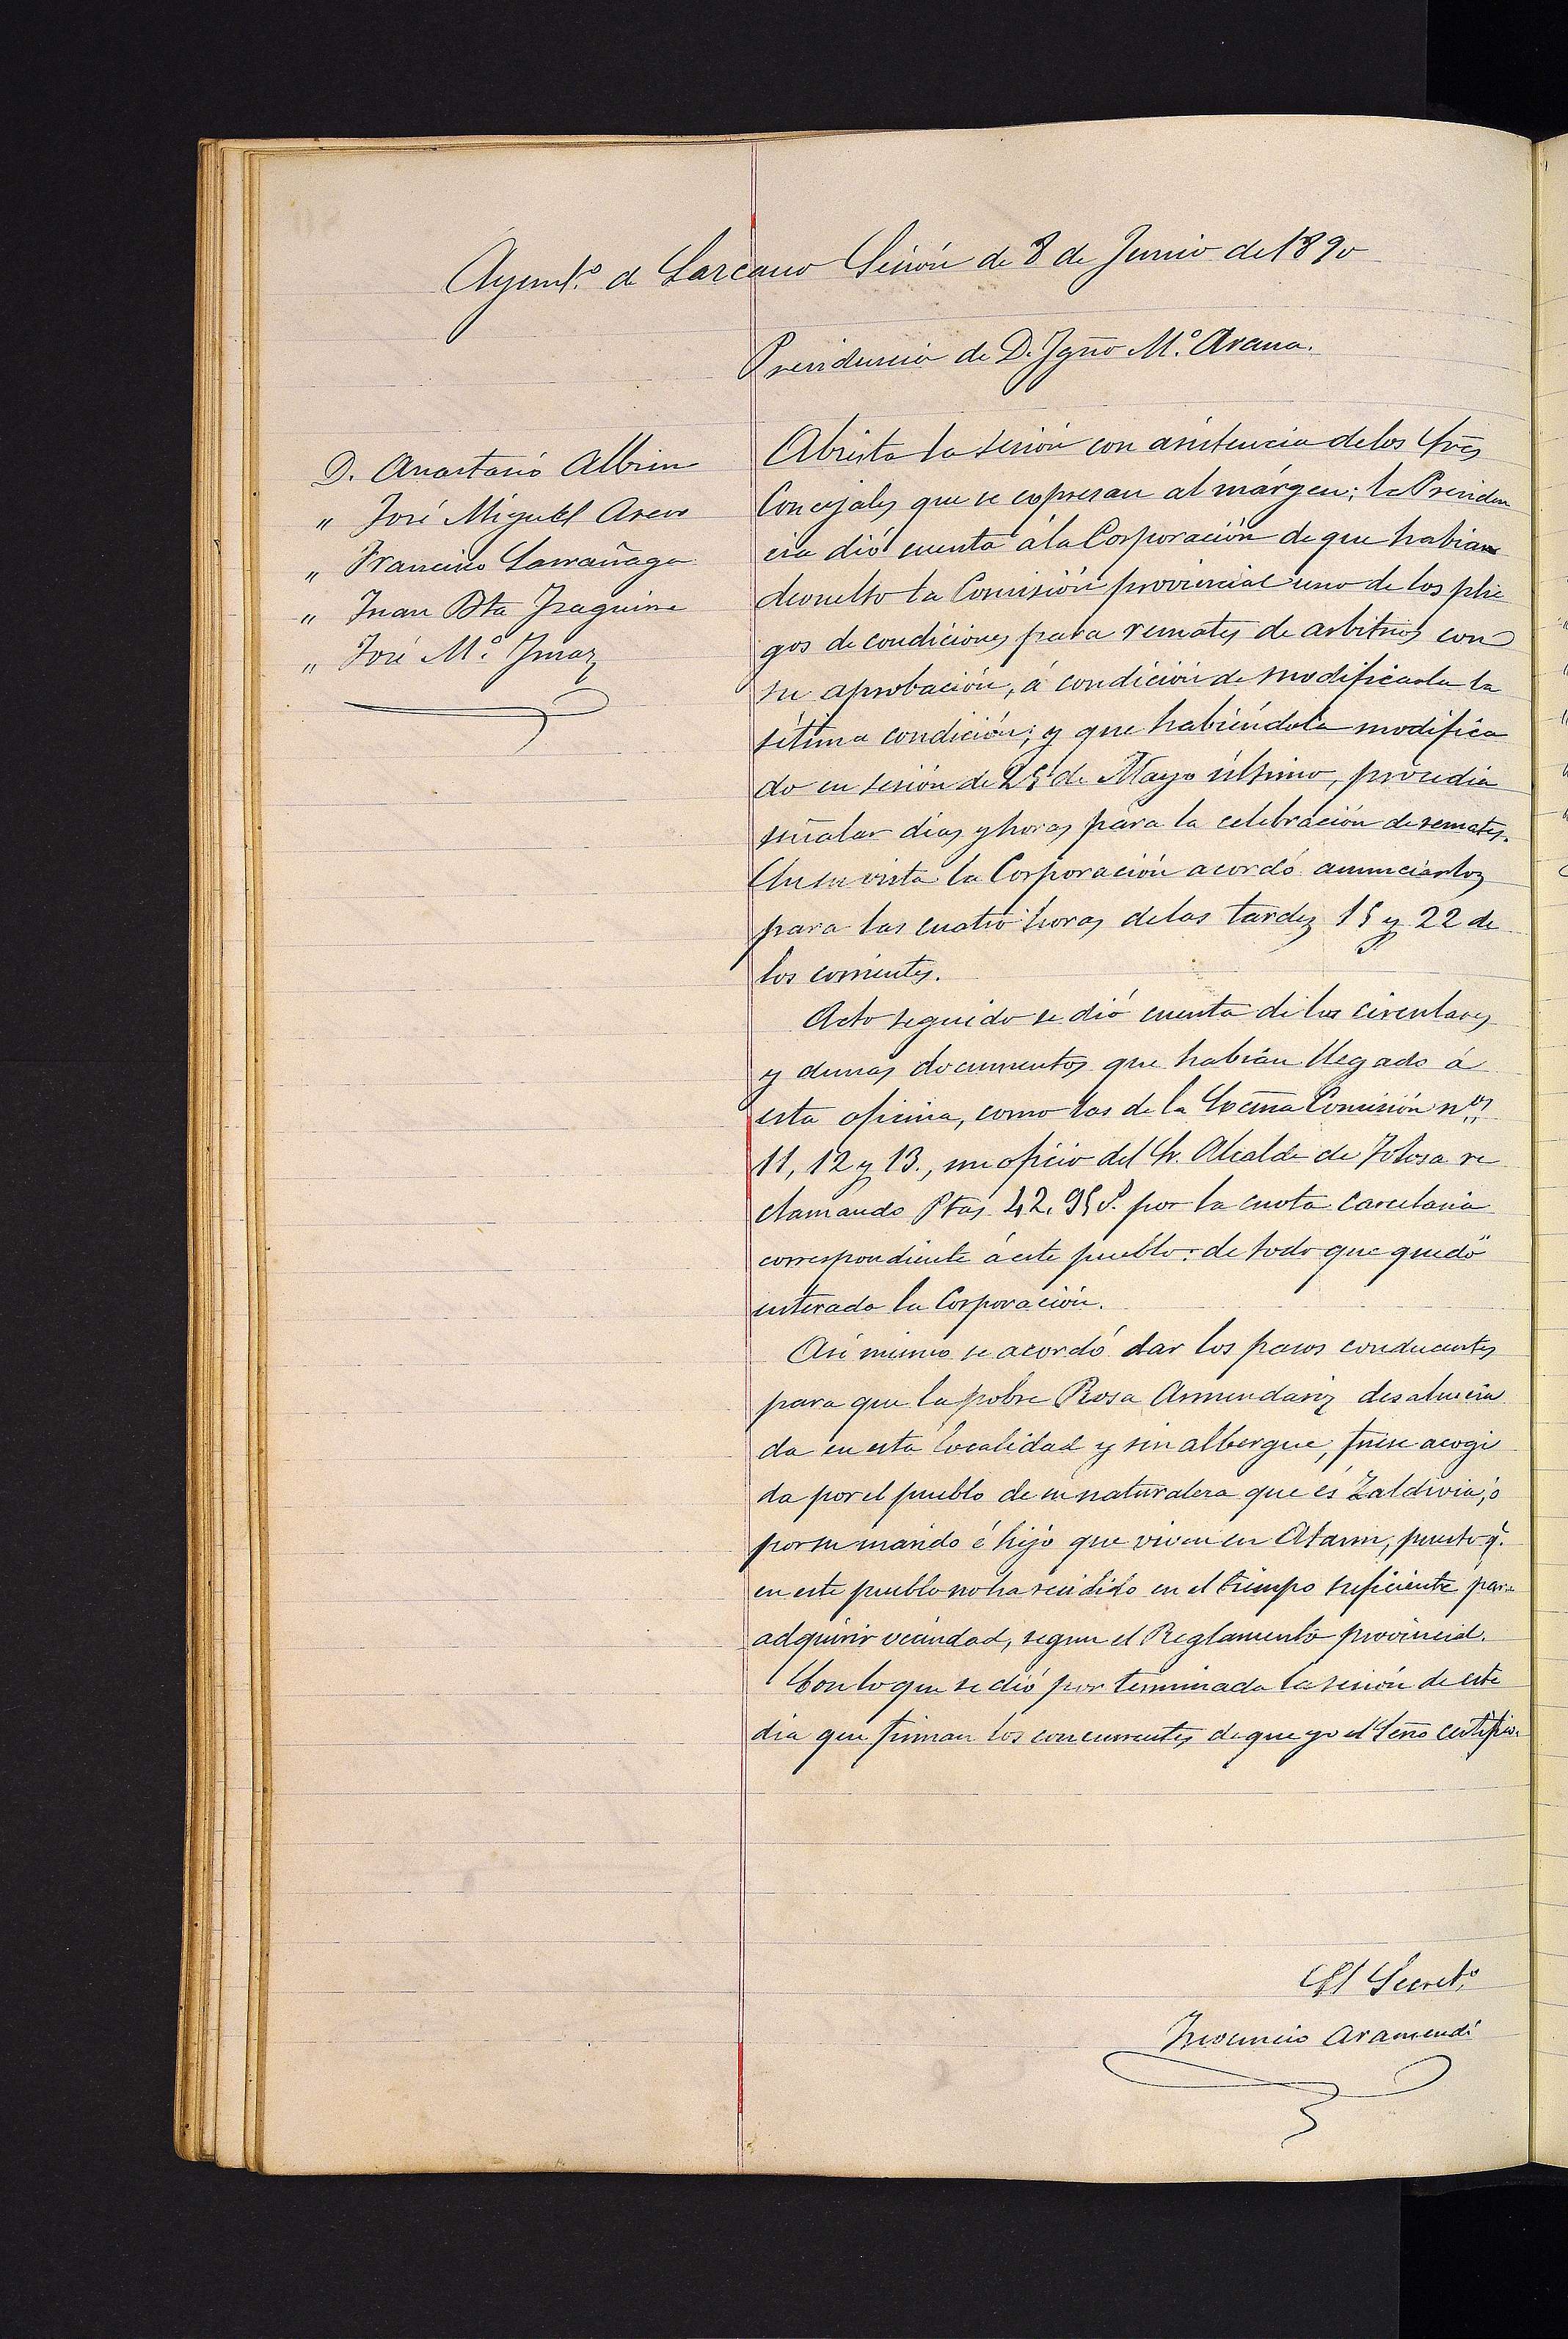 Ayunt.º de Lazcano Sesión de 8 de Junio de 1890
Presidencia de D. Ygno M.ª Arana.
D. Anastasio Albisu
" José Miguel Aseos
" Francisco Larrañaga
" Juan Bta Yzaguirre
" José M.ª Ymaz
Abierta la sesión con asistencia de los Sres
Concejales que se expresan al márgen; la Presiden
cia dió cuenta á la Corporación de que habian
devuelto la Comisión provincial uno de los plie
gos de condiciones para remates de arbitrios con
su aprobación, á condición de modificarla la
sétima condición; y que habiéndola modifica
do en sesión de 25 de Mayo último, procedia
señalar dias y horas para la celebración de remates.
En su vista la Corporación acordó anunciarlos
para las cuatro horas de las tardes 15 y 22 de
los corrientes.
Acto seguido se dió cuenta de las circulares
y demas documentos que habian llegado á
esta oficina, como las de la Excma Comisión nos
11, 12 y 13., un oficio del Sr. Alcalde de Tolosa re
clamando Ptas 42.95 por la cuota carcelaria
correspondiente á este pueblo: de todo que quedó
enterada la Corporación.
Asi mismo se acordó dar los pasos conducentes
para que la pobre Rosa Armendariz desahucia
da en esta localidad y sin albergue, fuese acogi
da por el pueblo de su naturaleza que es Zaldivia, ó
por su marido é hijo que viven en Ataun, puesto q.
en este pueblo no ha residido en el tiempo suficiente para
adquirir vecindad, segun el Reglamento provincial.
Con lo que se dió por terminada la sesión de este
dia que firman los concurrentes de que yo el Srio certifico.
El Secret.º
Inocencio Aramendi